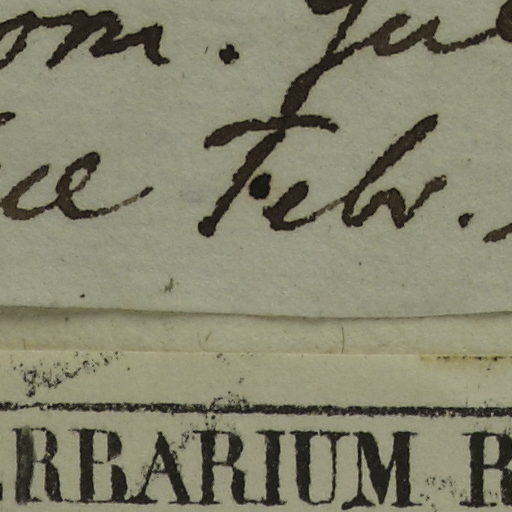 om. Jul
ce Febr.
ERBARIUM R